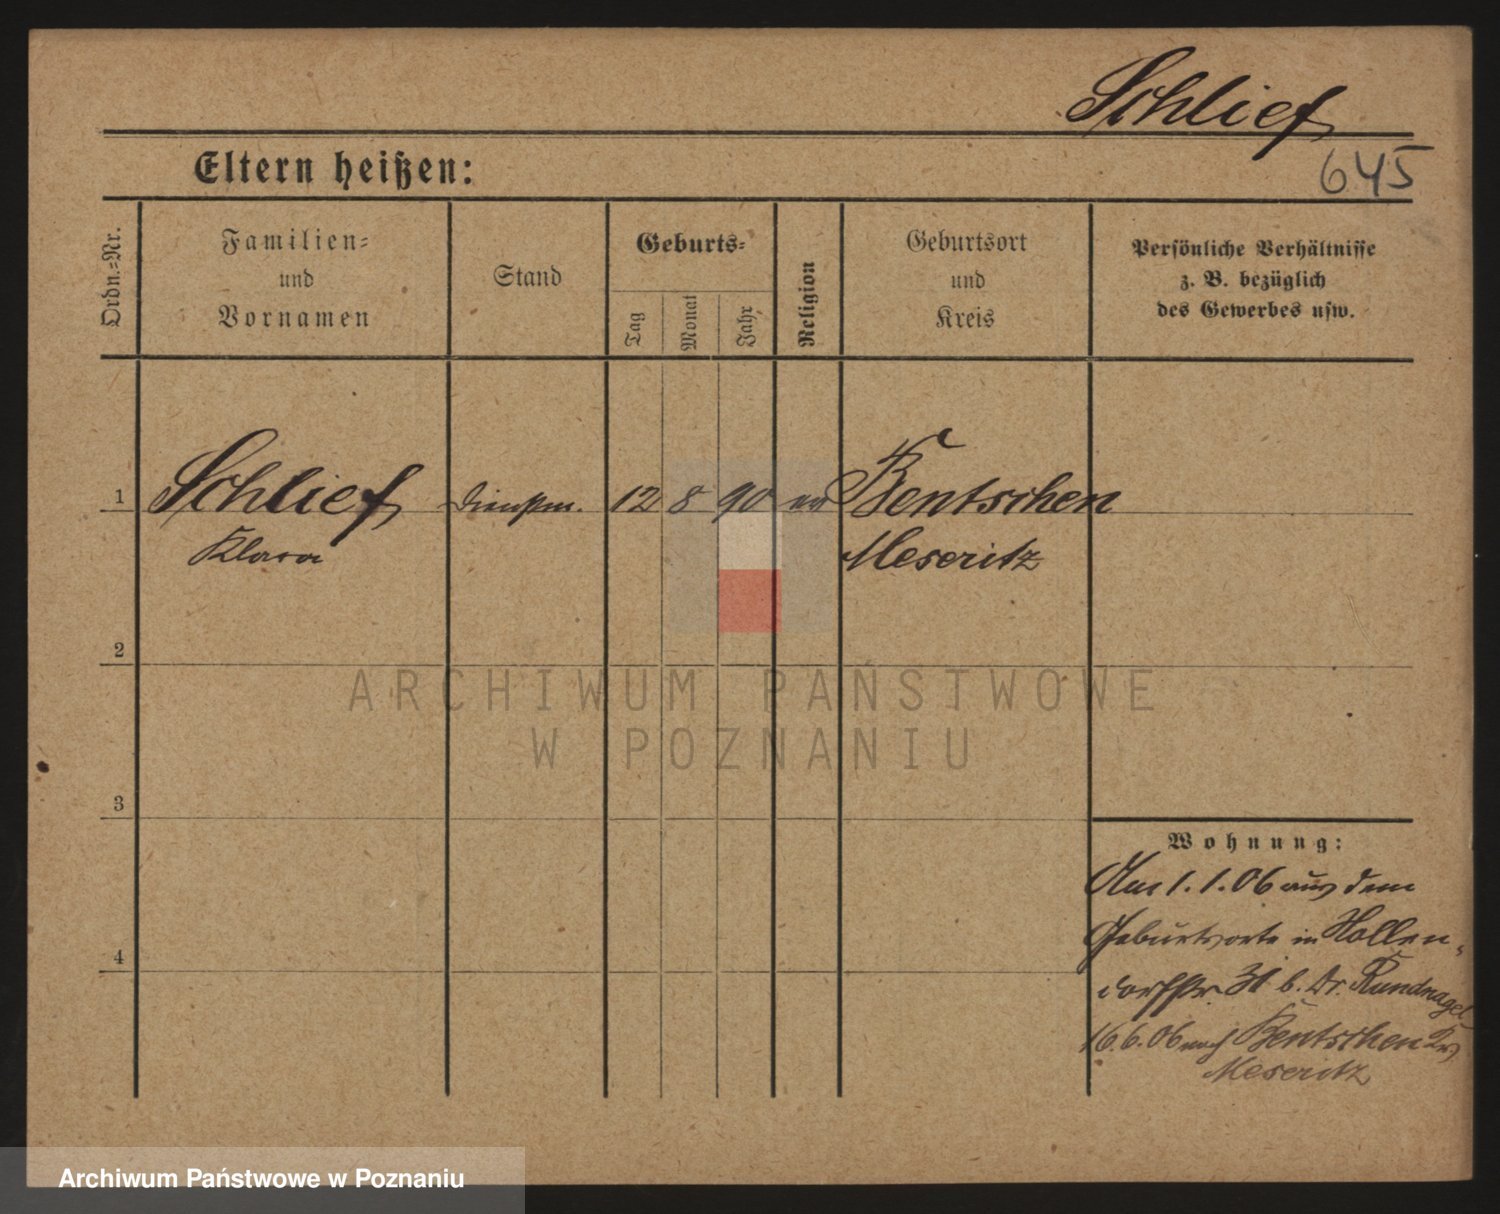 Schlief
645
Eltern heißen:
Ordn.=Nr.
Familien=
und
Vornamen
Stand
Geburts=
Tag
Monat
Jahr
Religion
Geburtsort
und
Kreis
Persönliche Verhältnisse
z. B. bezüglich
des Gewerbes usw.
1 Schlief Dienstm. 12 8 90 ev Bentschen
Klara Meseritz
2
3
4
Wohnung:
Am 1.1.06 aus dem
Geburtsorte in Hollen-
dorffstr 31 b. Dr. Rundnagel
16.6.06 nach Bentschen Krs
Meseritz
ARCHIWUM PAŃSTWOWE
W POZNANIU
Archiwum Państwowe w Poznaniu